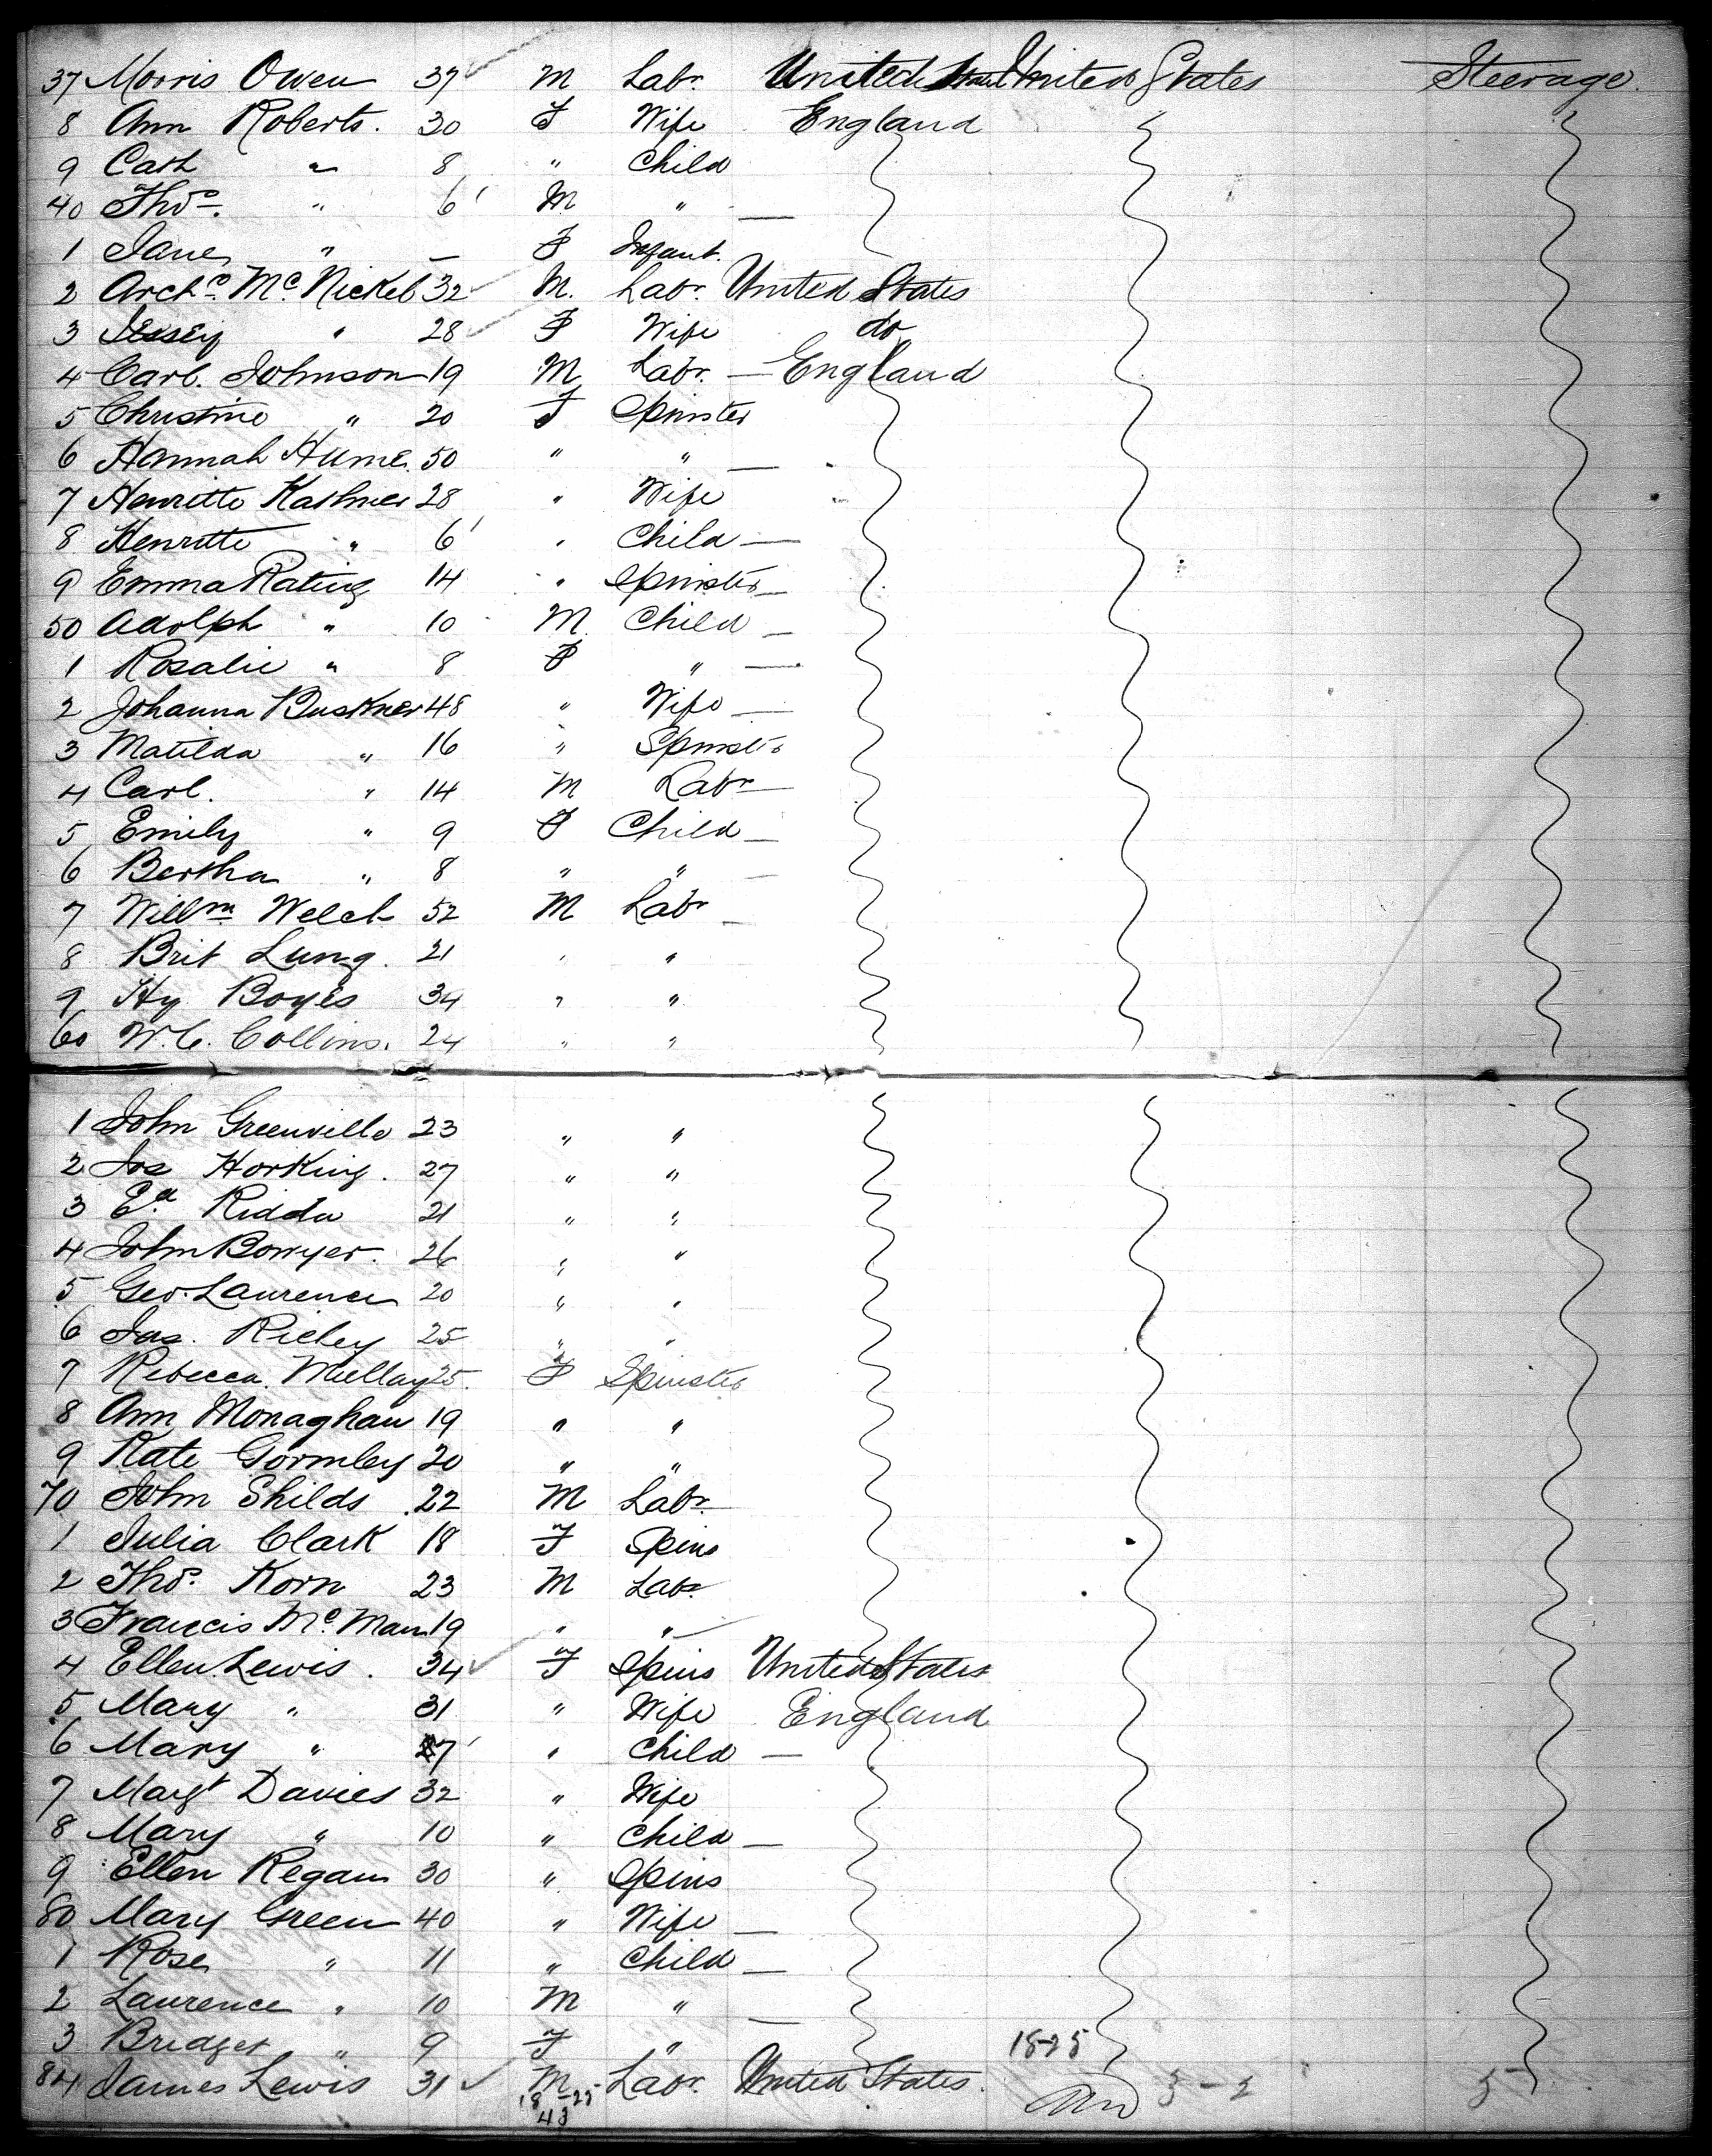 37 Morris Owen 37 M Labr. United States United States Steerage.
8 Ann Roberts. 30 F Wife England
9 Cath " 8 " Child
40 Thos. " 6 M " —
1 Jane " — F Infant.
2 Archd. McNickel 32 M. Labr. United States
3 Jessey " 28 F Wife do
4 Carl. Johnson 19 M Labr. — England
5 Christine " 20 F Spinster
6 Hannah Hume. 50 " " —
7 Henritte Kashner 28 " Wife
8 Henritte " 6 " Child —
9 Emma Rating 14 " Spinster —
50 Adolph " 10 M Child —
1 Rosalie " 8 F " —
2 Johanna Buskner 48 " Wife —
3 Matilda " 16 " Spinster
4 Carl. " 14 M Labr —
5 Emily " 9 F Child —
6 Bertha " 8 " " —
7 Willm Welch 52 M Labr —
8 Brit Lung. 21 " "
9 Hy Boyes 34 " "
60 W.C. Collins. 24 " "
1 John Greenville 23 " "
2 Jos Horking. 27 " "
3 Ed. Kidda 21 " "
4 John Bowyer. 26 " "
5 Geo. Laurence 20 " "
6 Jas. Richey 25 " "
7 Rebecca Mullay 25. F Spinster
8 Ann Monaghan 19 " "
9 Kate Gormley 20 " "
70 John Shilds 22 M Labr.
1 Julia Clark 18 F Spins
2 Thos. Korn 23 M Labr
3 Francis McMann 19 " "
4 Ellen Lewis. 34 F Spins United States
5 Mary " 31 " Wife England
6 Mary " 7 " Child —
7 Margt Davies 32 " Wife
8 Mary " 10 " Child —
9 Ellen Regan 30 " Spins
80 Mary Green 40 " Wife —
1 Rose " 11 " Child —
2 Laurence " 10 M " —
3 Bridget " 9 F " 18-25
84 James Lewis 31 M Labr. United States. 3-2 5
18-25
43